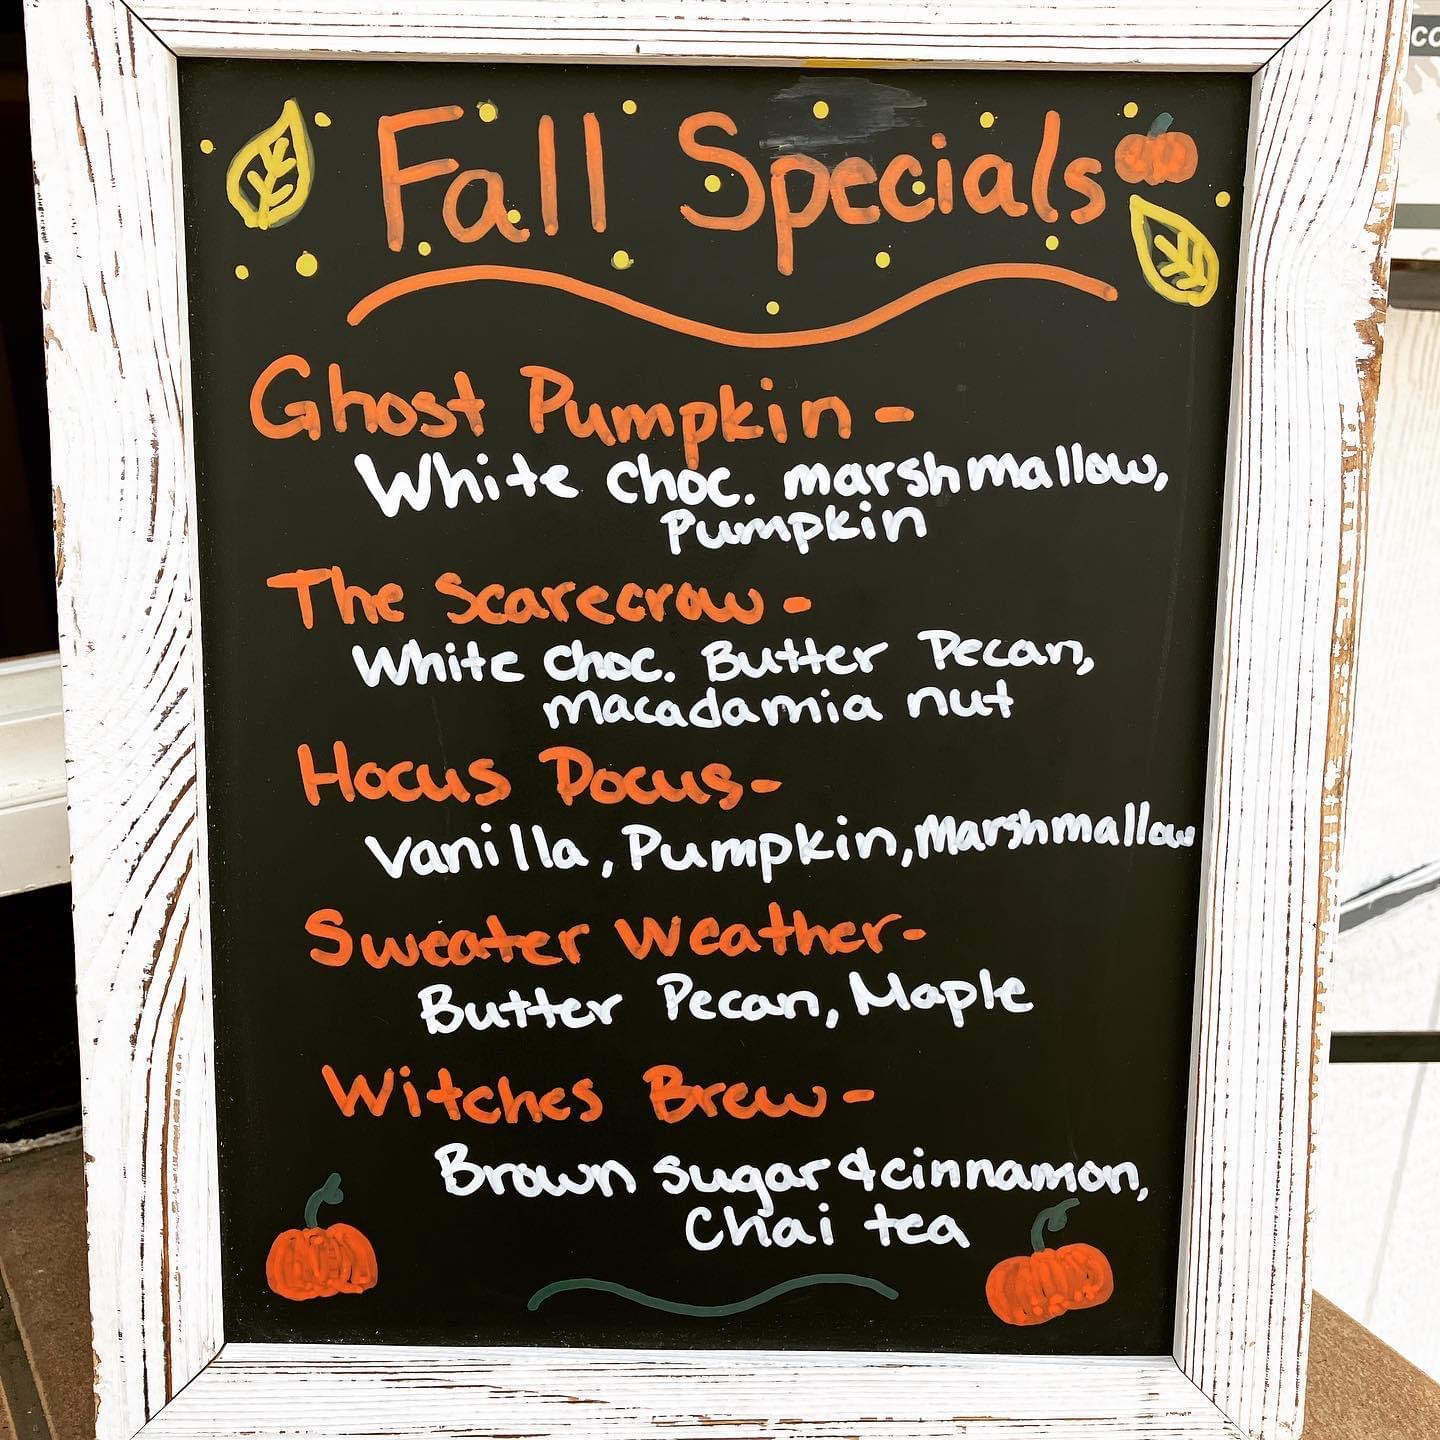 Fall Specials
Ghost Pumpkin -
White choc. marshmallow,
Pumpkin
The Scarecrow -
White choc. Butter Pecan,
macadamia nut
Hocus Pocus -
Vanilla, Pumpkin, Marshmallow
Sweater Weather -
Butter Pecan, Maple
Witches Brew -
Brown sugar & cinnamon,
Chai tea